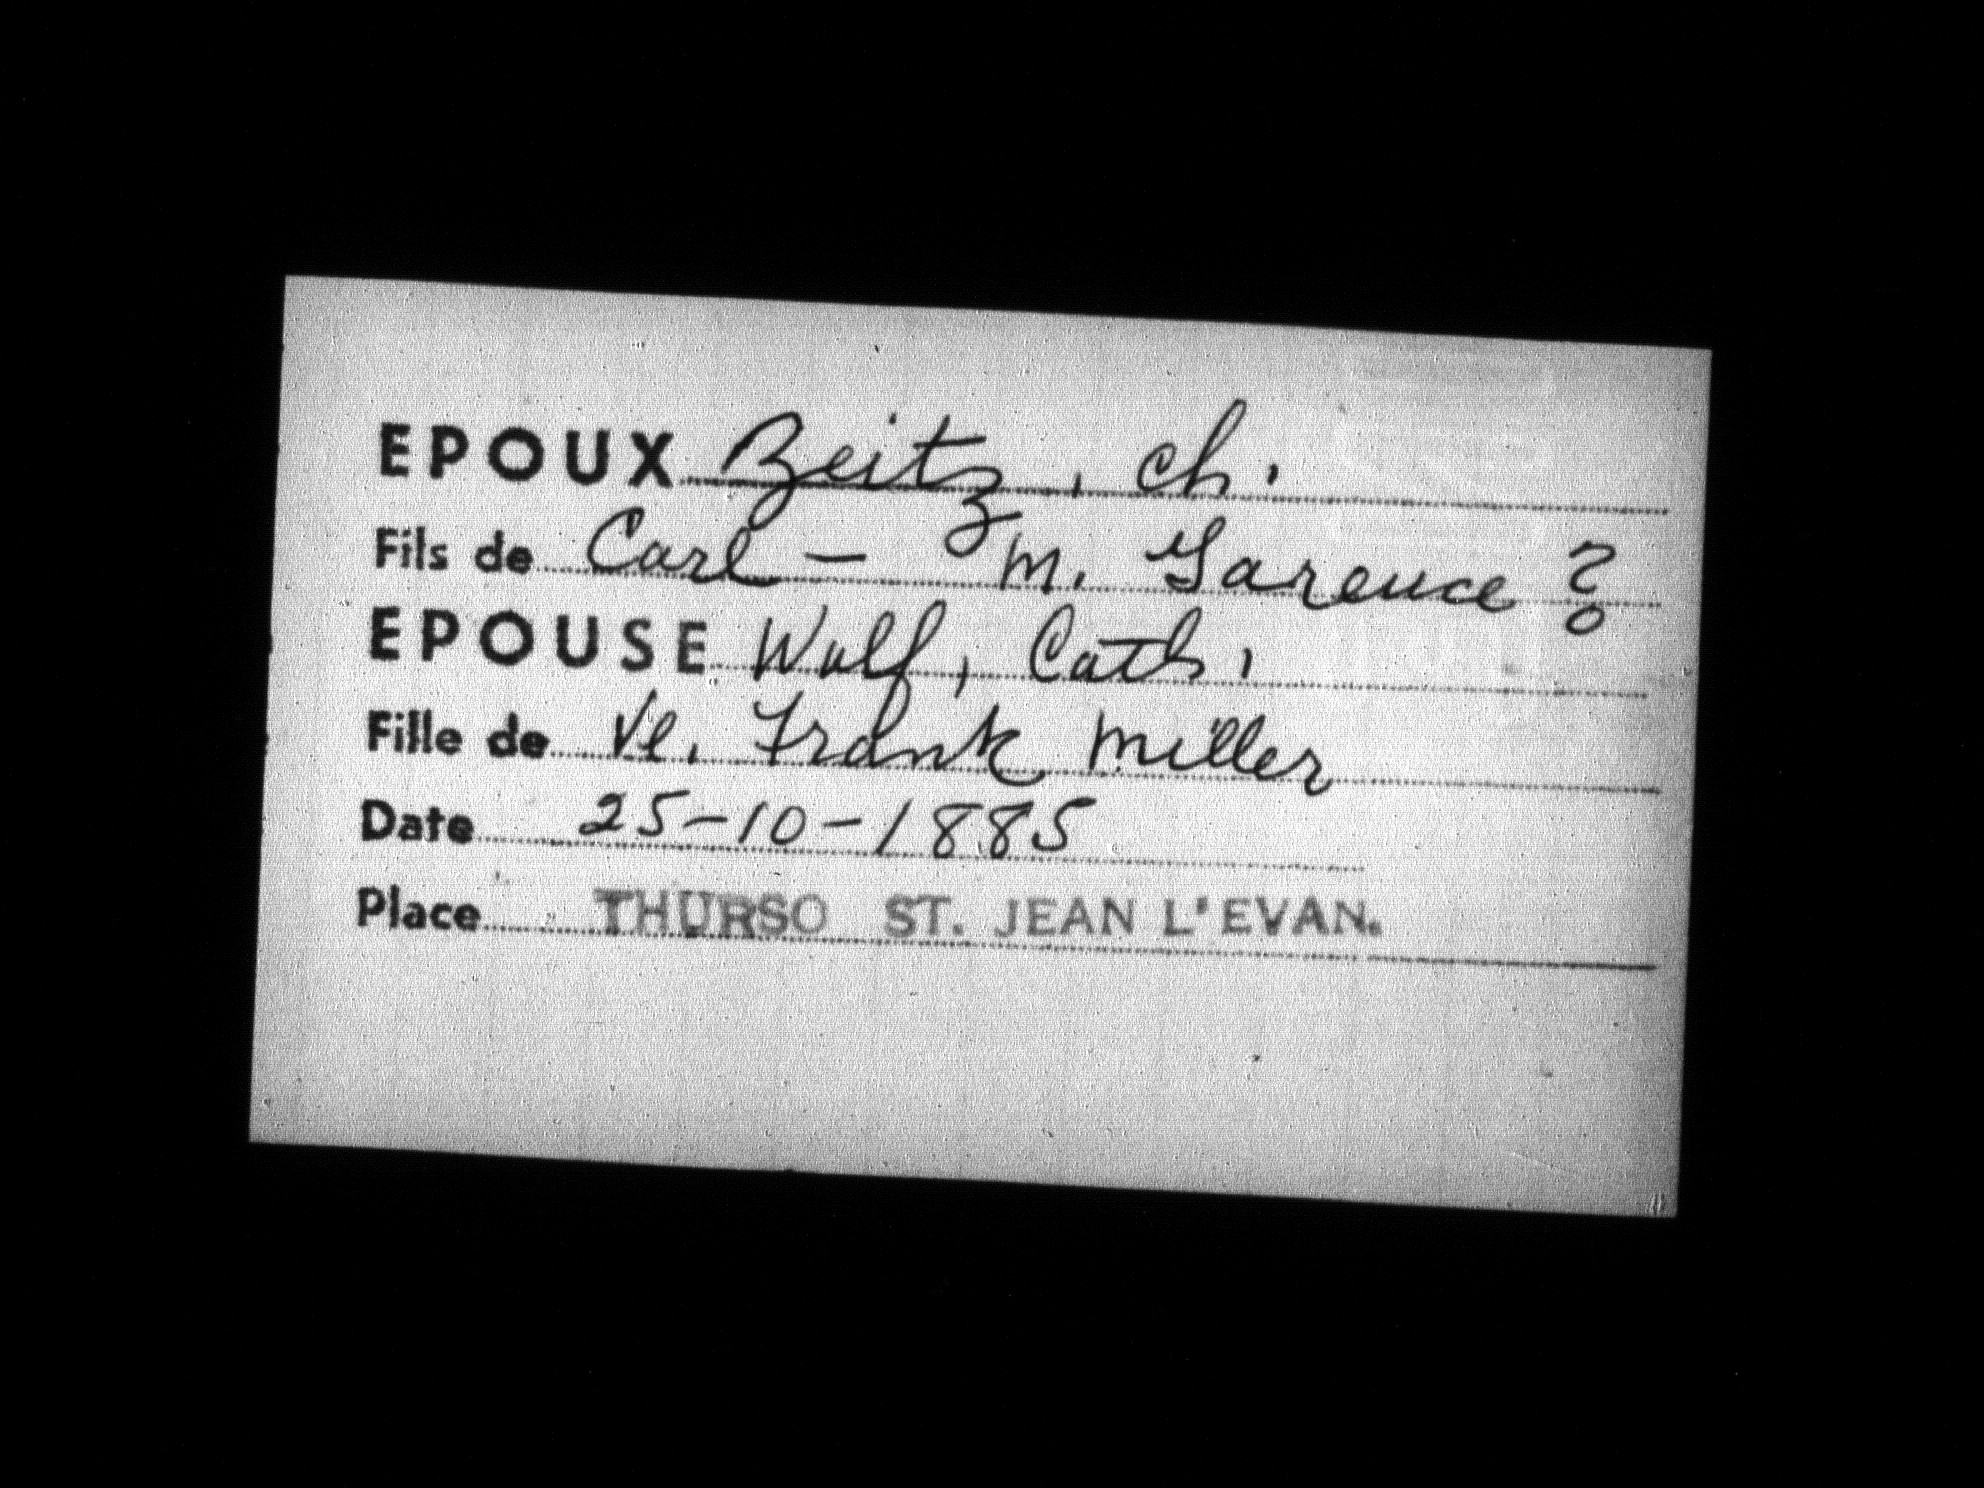 EPOUX Zeitz, Ch.
Fils de Carl — M. Garence ?
EPOUSE Wulf, Cath.
Fille de Ve. Frank Miller
Date 25-10-1885
Place THURSO ST. JEAN L'EVAN.